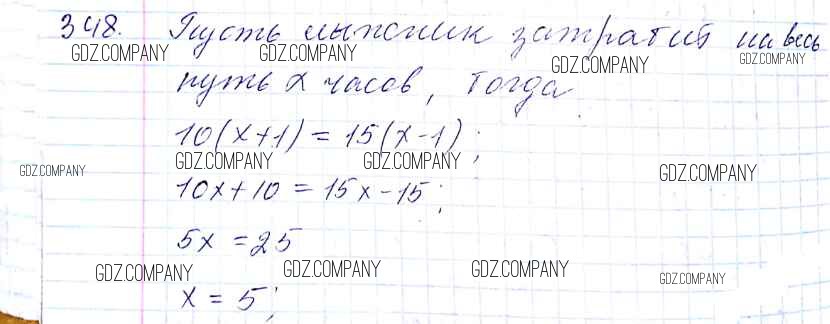 348. Пусть лыжник затратит на весь
GDZ.COMPANY GDZ.COMPANY GDZ.COMPANY GDZ.COMPANY
путь x часов, Тогда
10(x+1) = 15(x-1);
GDZ.COMPANY GDZ.COMPANY GDZ.COMPANY GDZ.COMPANY
10x+10 = 15x-15;
5x = 25
GDZ.COMPANY GDZ.COMPANY GDZ.COMPANY GDZ.COMPANY
x = 5;